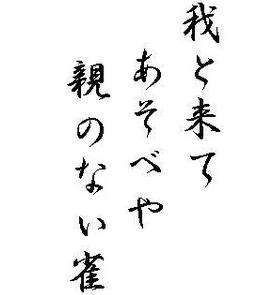 我と来て
あそべや
親のない雀